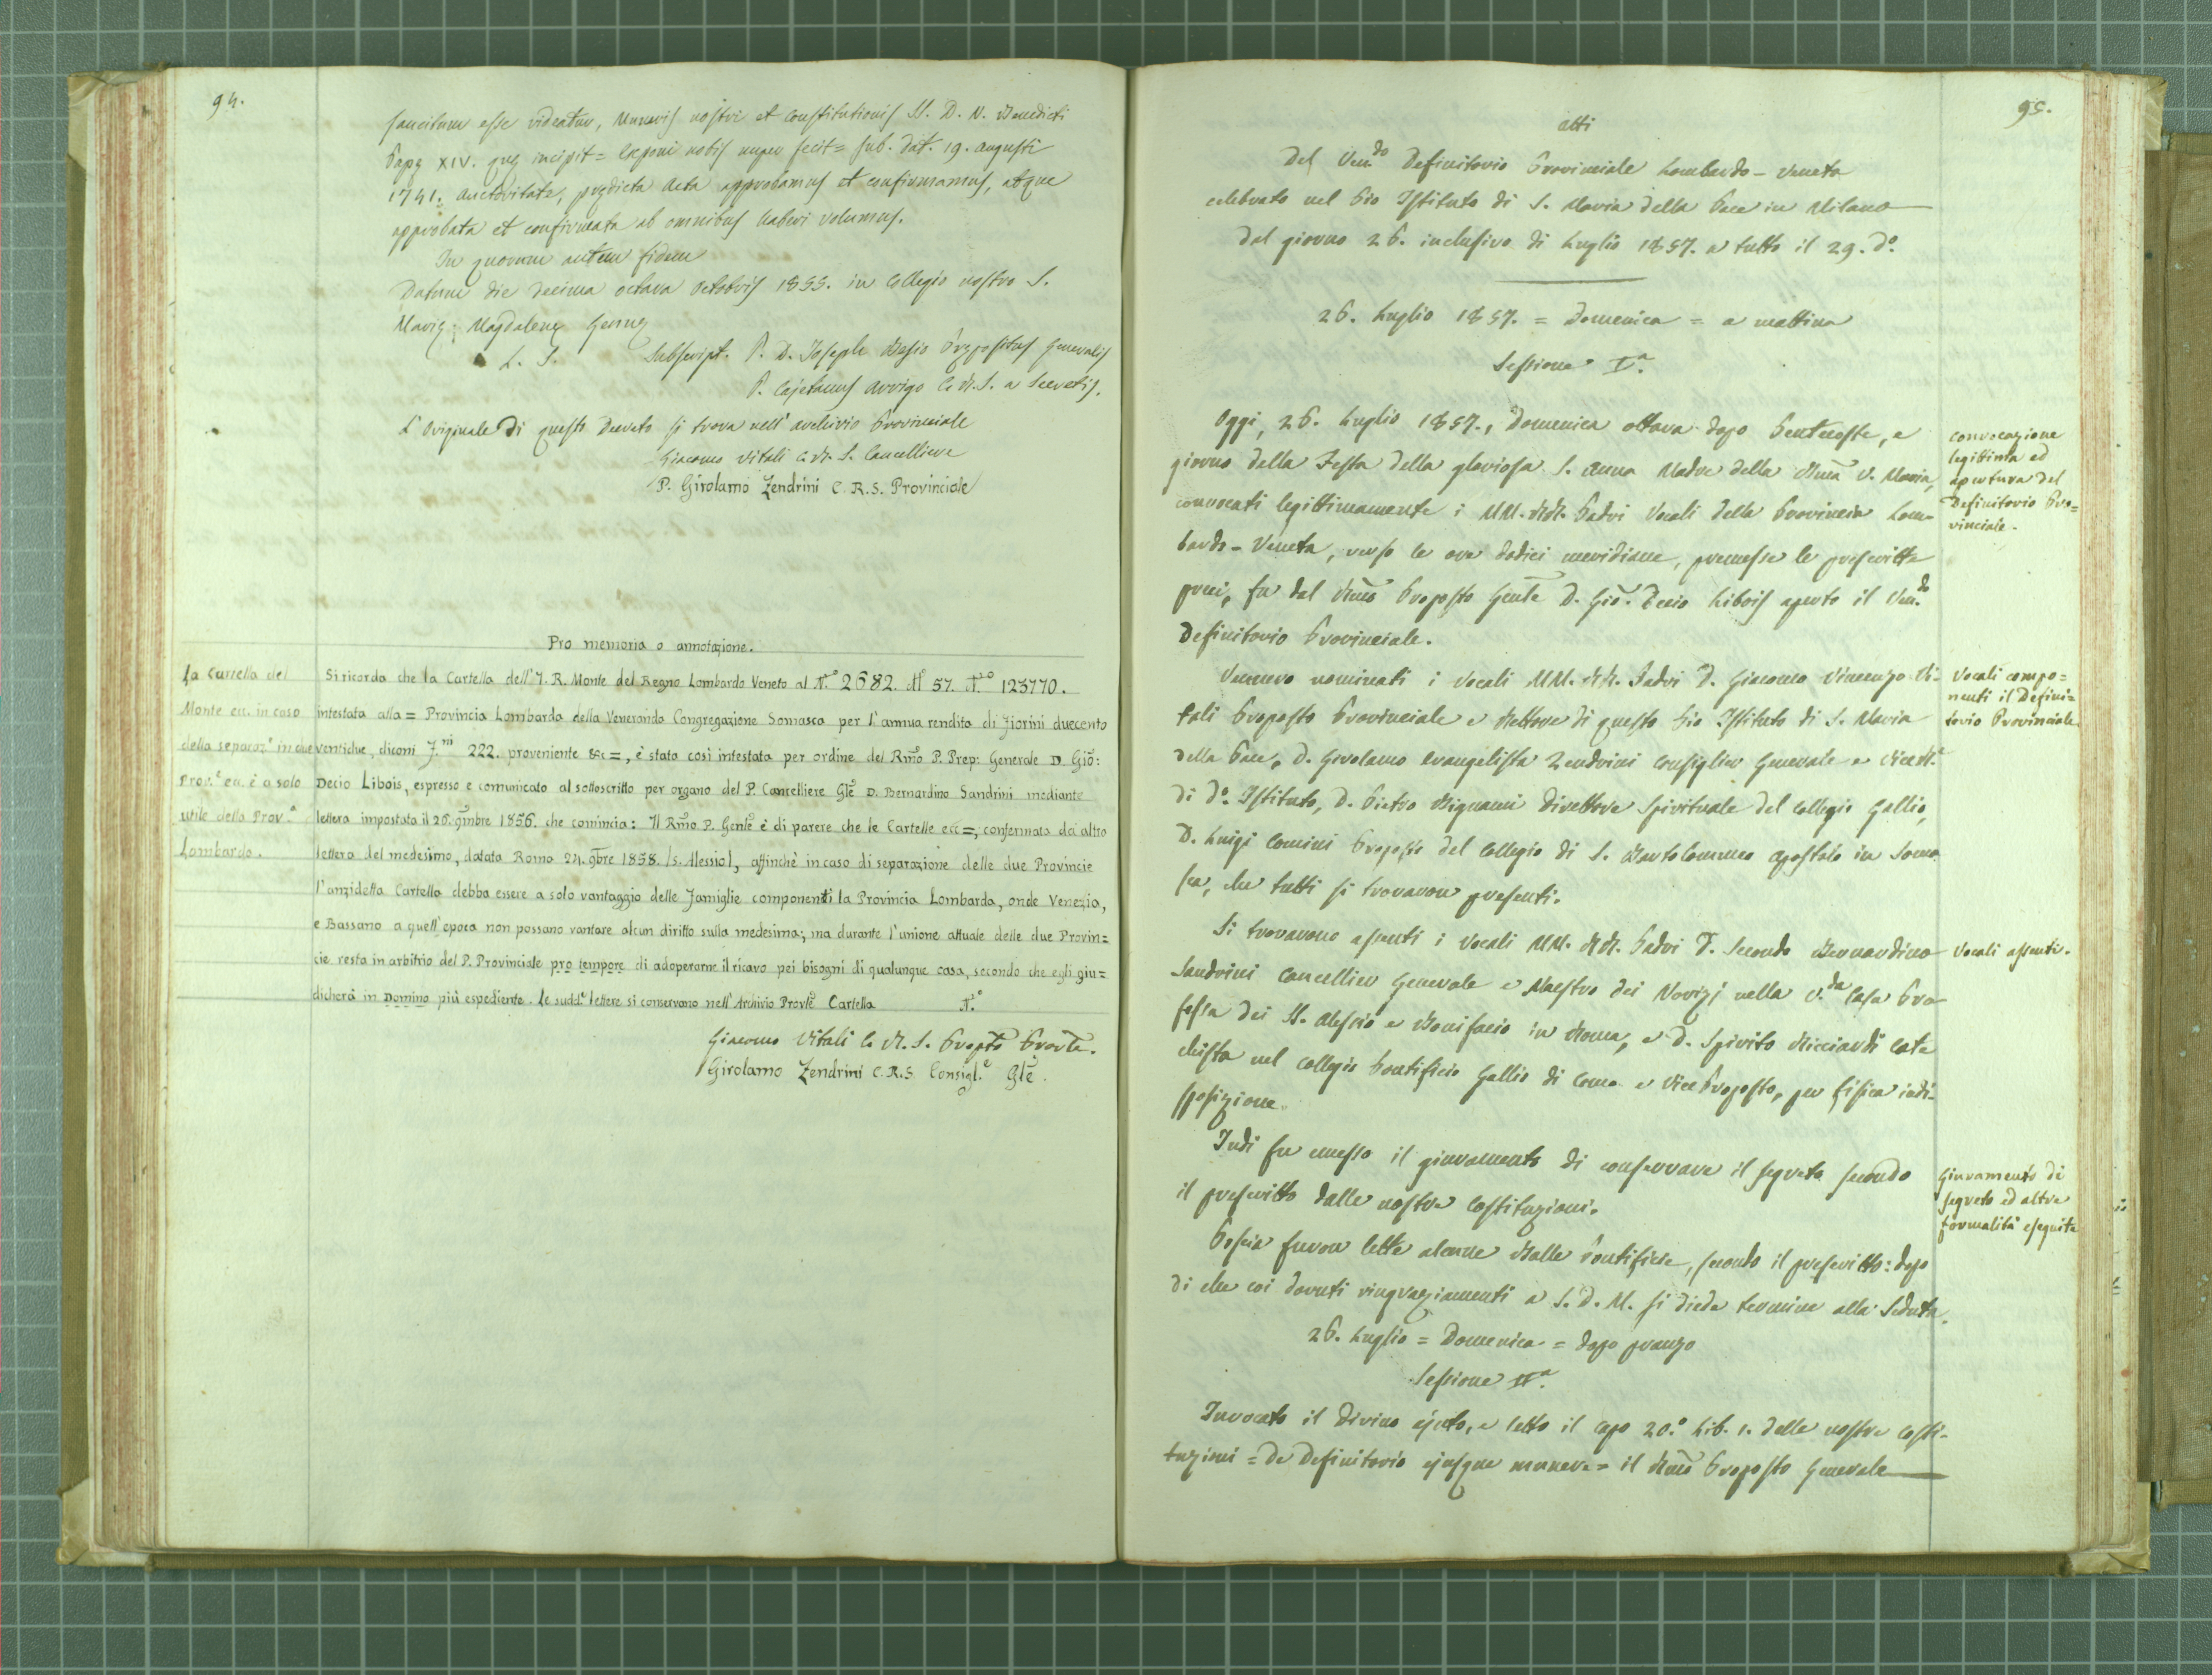 94.
sancitum esse videatur, Muneris nostri et Constitutionis SS. D. N. Benedicti
Papę XIV. quę incipit = Exponi nobis nuper fecit = sub. dat. 19. Augusti
1741. auctoritate, prędicta Acta approbamus et confirmamus, atque
approbata et confirmata ab omnibus haberi volumus.
In quorum autem fidem
Datum die decima octava Octobris 1855. in Collegio nostro S.
Marię Magdalenę Genuę
L. S. Subscript. P. D. Joseph Besio Prępositus Generalis
P. Cajetanus Arrigo C. R. S. a Secretis.
L'Originale di questo Decreto si trova nell'archivio Provinciale
Giacomo Vitali C. R. S. Cancelliere
P. Girolamo Zendrini C. R. S. Provinciale
Pro memoria o annotazione.
La Cartella del
Monte ecc. in caso
della separaz.e in due
Prov.e ecc. è a solo
utile della Prov.a
Lombarda.
Si ricorda che la Cartella dell'I. R. Monte del Regno Lombardo Veneto al N.o 2682. al 57. N.ro 123770.
intestata alla = Provincia Lombarda della Veneranda Congregazione Somasca per l'annua rendita di fiorini duecento
ventidue, diconi f.ni 222. proveniente &c =, è stata così intestata per ordine del Rmo P. Prep: Generale D. Gio:
Decio Libois, espresso e comunicato al sottoscritto per organo del P. Cancelliere Gle D. Bernardino Sandrini mediante
lettera impostata il 26. 9mbre 1856. che comincia: Il Rmo P. Genle è di parere che le Cartelle ecc =, confermata da altra
lettera del medesimo, datata Roma 24. 9bre 1858. /S. Alessio/, affinchè in caso di separazione delle due Provincie
l'anzidetta Cartella debba essere a solo vantaggio delle famiglie componenti la Provincia Lombarda, onde Venezia,
e Bassano a quell'epoca non possano vantare alcun diritto sulla medesima; ma durante l'unione attuale delle due Provin=
cie resta in arbitrio del P. Provinciale pro tempore di adoperarne il ricavo pei bisogni di qualunque casa, secondo che egli giu=
dicherà in Domino più espediente. Le sudd.e lettere si conservano nell'Archivio Provle Cartella N.ro
Giacomo Vitali C. R. S. Propto Provle.
Girolamo Zendrini C. R. S. Consigl.e Gle.
95.
Atti
Del Ven.do Definitorio Provinciale Lombardo-Veneto
celebrato nel Pio Istituto di S. Maria della Pace in Milano
dal giorno 26. inclusivo di Luglio 1857. a tutto il 29. d.o
26. Luglio 1857. = Domenica = a mattina
Sessione I.a
Oggi, 26. Luglio 1857., Domenica ottava dopo Pentecoste, e
giorno della Festa della gloriosa S. Anna Madre della Bma V. Maria,
convocati legittimamente i MM. RR. Padri Vocali della Provincia Lom-
bardo-Veneta, verso le ore dodici meridiane, premesse le prescritte
preci, fu dal Rmo Preposto Genle D. Gio. Decio Libois aperto il Ven.do
Definitorio Provinciale.
Convocazione
legittima ed
apertura del
Definitorio Pro=
vinciale.
Vennero nominati i Vocali MM. RR. Padri D. Giacomo Vincenzo Vi-
tali Preposto Provinciale e Rettore di questo Pio Istituto di S. Maria
della Pace, D. Girolamo Evangelista Zendrini Consigliere Generale e ViceR.e
di d.o Istituto, D. Pietro Bignami Direttore Spirituale del Collegio Gallio,
D. Luigi Comini Preposto del Collegio di S. Bartolommeo Apostolo in Soma
sca, che tutti si trovaron presenti.
Vocali compo=
nenti il Defini=
torio Provinciale
Si trovarono assenti i Vocali MM. RR. Padri D. Secondo Bernardino
Sandrini Cancelliere Generale e Maestro dei Novizj nella V.da Casa Pro
fessa dei SS. Alessio e Bonifacio in Roma, e D. Spirito Ricciardi Cate
chista nel Collegio Pontificio Gallio di Como e Vice Preposto, per fisica indi-
sposizione.
Vocali assenti.
Indi fu emesso il giuramento di conservare il segreto secondo
il prescritto dalle nostre Costituzioni.
Giuramento di
segreto ed altre
formalità eseguite
Poscia furon lette alcune Bolle Pontificie, secondo il prescritto: dopo
di che coi dovuti ringraziamenti a S. D. M. si diede termine alla Seduta.
26. Luglio = Domenica = dopo pranzo
Sessione II.a
Invocato il divino ajuto, e letto il capo 20.o Lib. 1. delle nostre Costi-
tuzioni = De Definitorio ejusque munere = il Rmo Preposto Generale